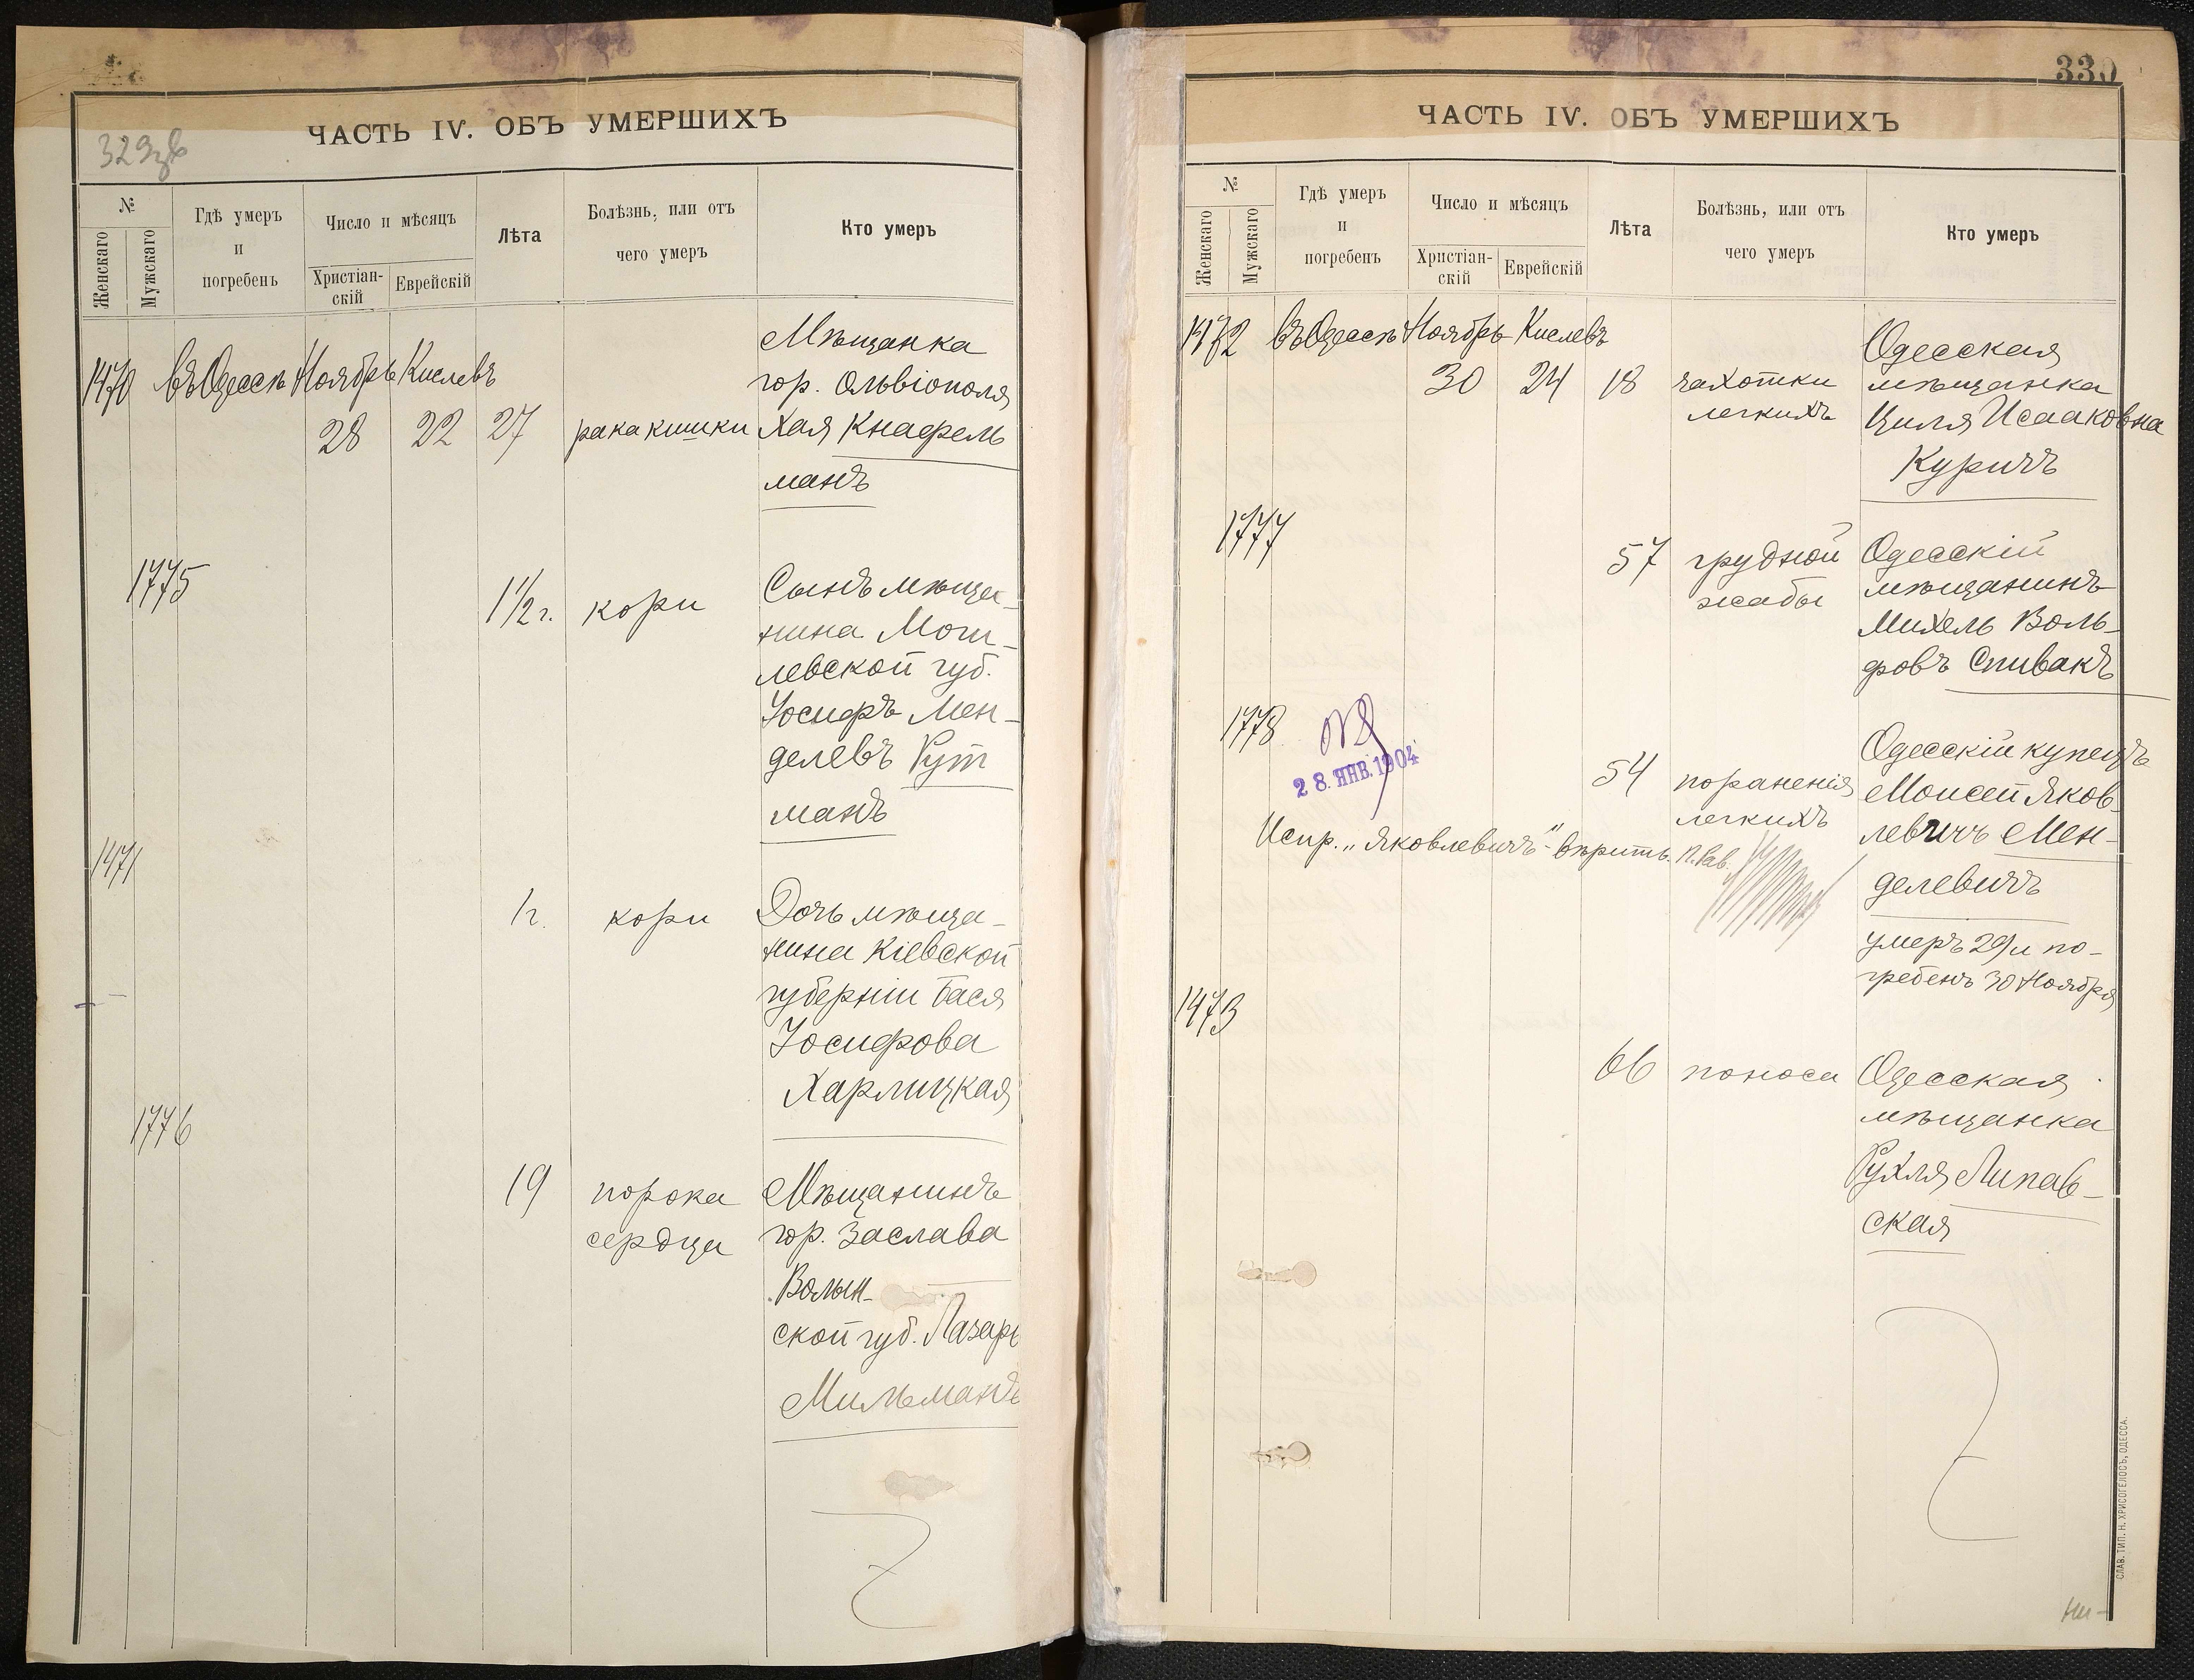 329зв
ЧАСТЬ IV. ОБЪ УМЕРШИХЪ
№
Женскаго
Мужскаго
Гдѣ умеръ
и
погребенъ
Число и мѣсяцъ
Христіан-
скій
Еврейскій
Лѣта
Болѣзнь, или отъ
чего умеръ
Кто умеръ
1470 въ Одессѣ Ноябрь Кислевъ
28 22 27 рака кишки
Мѣщанка
гор. Ольвіополя
Хая Кнафель
манъ
1775
1½ г. кори
Сынъ мѣща-
нина Моги-
левской губ.
Іосифъ Мен-
делевъ Гут
манъ
1471
1 г. кори
Дочь мѣща-
нина Кіевской
губерніи Бася
Іосифова
Харлицкая
1776
19 порока
сердца
Мѣщанинъ
гор. Заслава
Волын-
ской губ. Лазарь
Мильманъ
330
ЧАСТЬ IV. ОБЪ УМЕРШИХЪ
№
Женскаго
Мужскаго
Гдѣ умеръ
и
погребенъ
Число и мѣсяцъ
Христіан-
скій
Еврейскій
Лѣта
Болѣзнь, или отъ
чего умеръ
Кто умеръ
1472 въ Одессѣ Ноябрь Кислевъ
30 24 18 чахотки
легкихъ
Одесская
мѣщанка
Циля Исааковна
Куричъ
1777
57 грудной
жабы
Одесскій
мѣщанинъ
Михель Воль-
фовъ Спивакъ
1778
28. ЯНВ. 1904
54 пораненія
легкихъ
Одесскій купецъ
Моисей Яков-
левичъ Мен-
делевичъ
умеръ 29/и по-
гребенъ 30 Ноября
Испр. „Яковлевичъ" вѣрить. П. Рав.
1473
66 поноса
Одесская
мѣщанка
Рухля Липав-
ская
СЛАВ. ТИП. Н. ХРИСОГЕЛОСЪ, ОДЕССА.